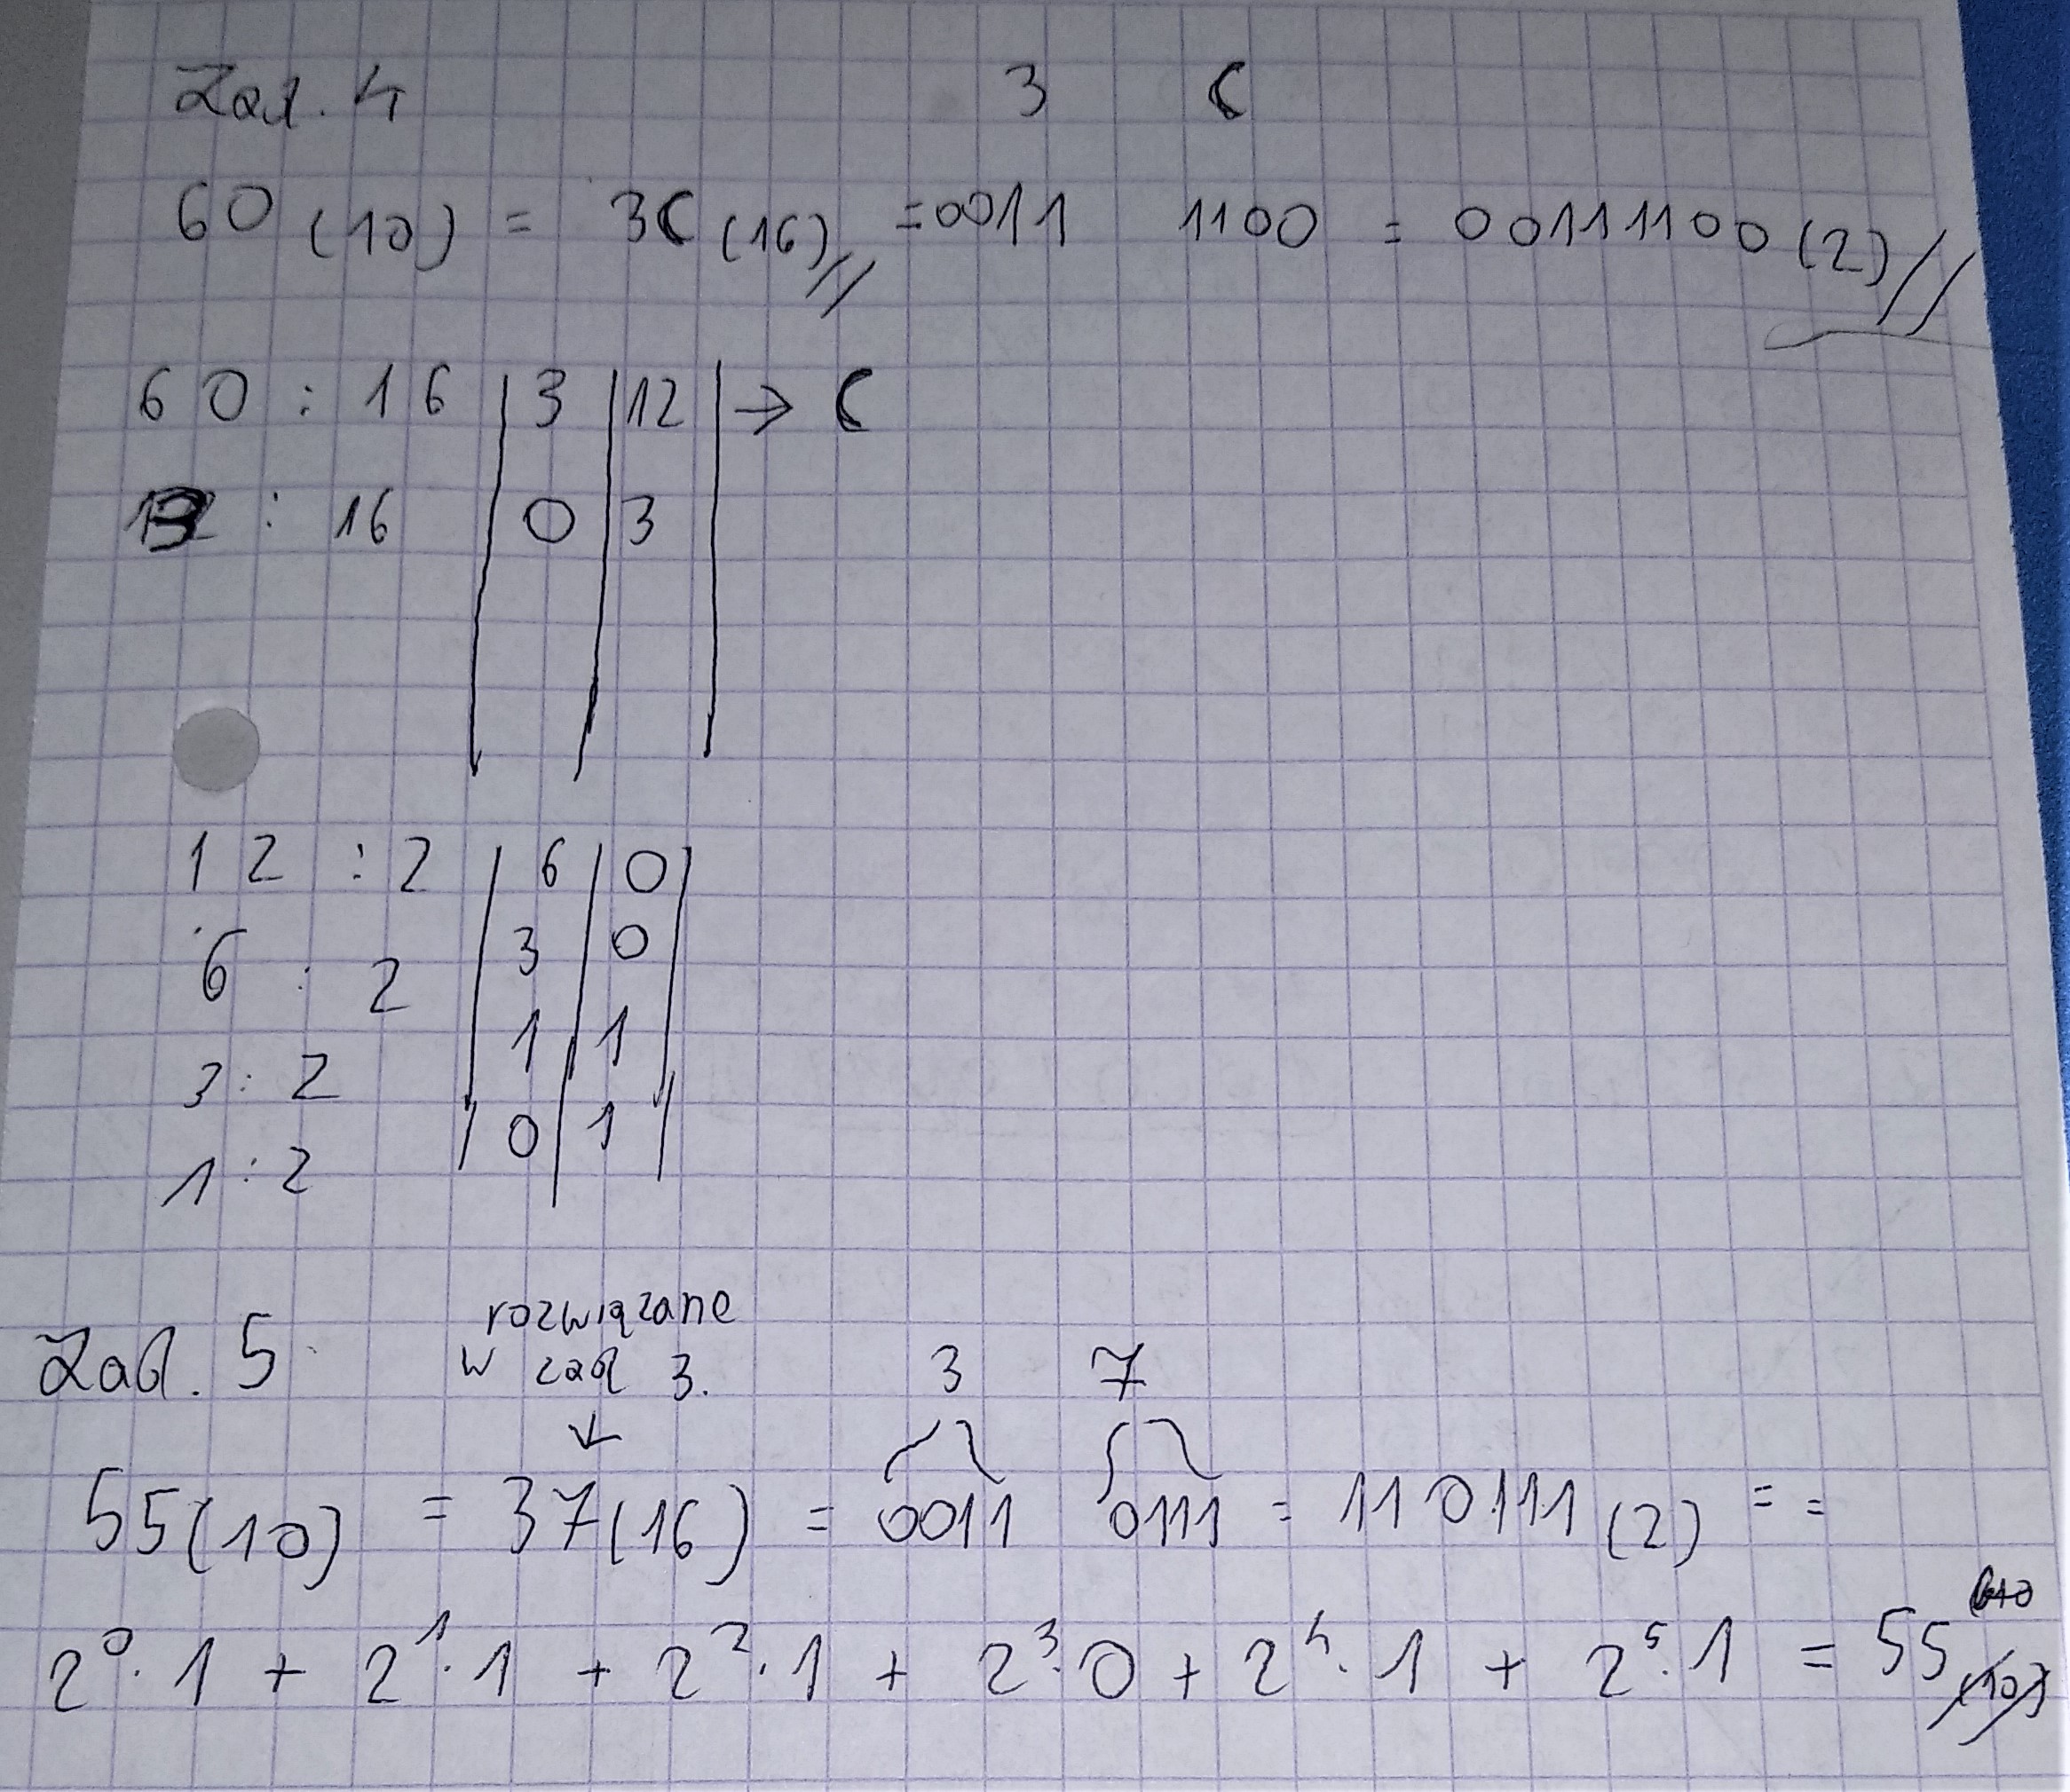 Zad. 4
3 C
60 (10) = 3C (16) = 0011 1100 = 00111100 (2)
60 : 16 | 3 | 12 | → C
3 : 16 | 0 | 3 |
12 : 2 | 6 | 0 |
6 : 2 | 3 | 0 |
3 : 2 | 1 | 1 |
1 : 2 | 0 | 1 |
rozwiązane
Zad. 5 w zad 3. 3 7
↓
55(10) = 37(16) = 0011 0111 = 110111 (2) = =
2⁰·1 + 2¹·1 + 2²·1 + 2³·0 + 2⁴·1 + 2⁵·1 = 55 (10)